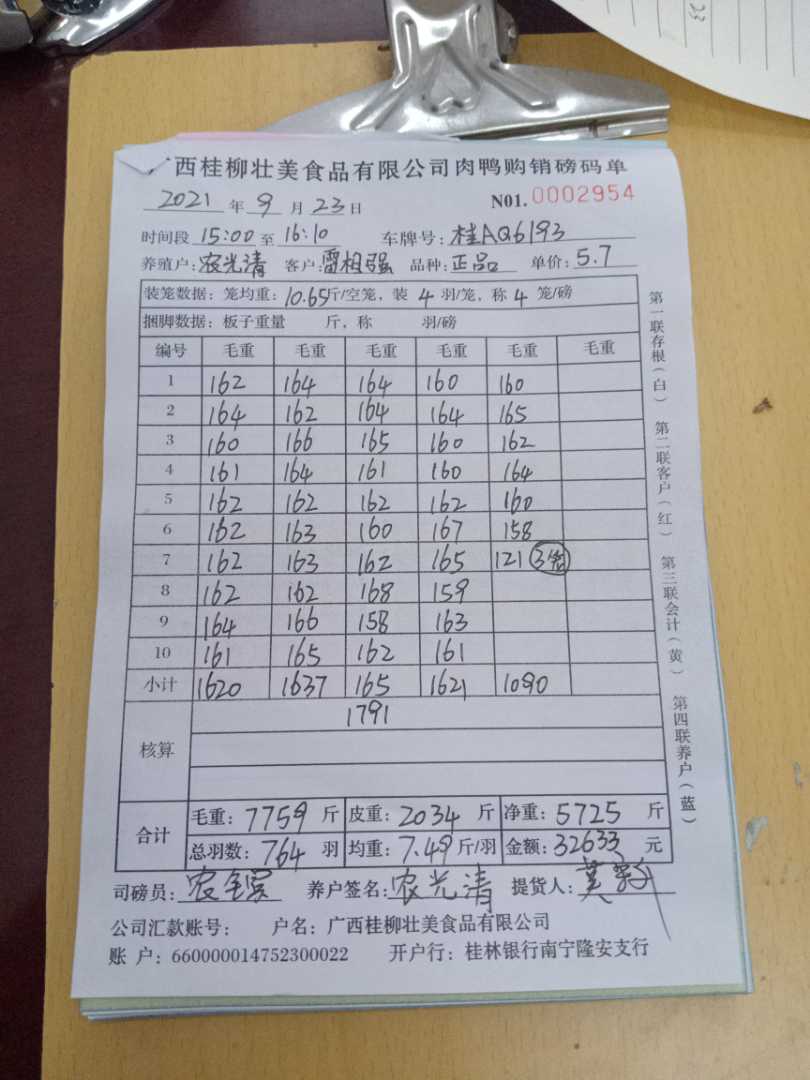 广西桂柳壮美食品有限公司肉鸭购销磅码单
2021 年 9 月 23 日 N01. 0002954
时间段 15:00 至 16:10 车牌号: 桂AQ6193
养殖户: 农光清 客户: 雷祖强 品种: 正品 单价: 5.7
装笼数据: 笼均重: 10.65 斤/空笼, 装 4 羽/笼, 称 4 笼/磅
捆脚数据: 板子重量 斤, 称 羽/磅
编号 毛重 毛重 毛重 毛重 毛重 毛重
1 162 164 164 160 160
2 164 162 164 164 165
3 160 166 165 160 162
4 161 164 161 160 164
5 162 162 162 162 160
6 162 163 160 167 158
7 162 163 162 165 121 3笼
8 162 162 168 159
9 164 166 158 163
10 161 165 162 161
小计 1620 1637 165 1621 1090
1791
核算
合计
毛重: 7759 斤 皮重: 2034 斤 净重: 5725 斤
总羽数: 764 羽 均重: 7.49 斤/羽 金额: 32633 元
司磅员: 农 养户签名: 农光清 提货人: 莫
公司汇款账号: 户名: 广西桂柳壮美食品有限公司
账 户: 660000014752300022 开户行: 桂林银行南宁隆安支行
第一联存根(白) 第二联客户(红) 第三联会计(黄) 第四联养户(蓝)